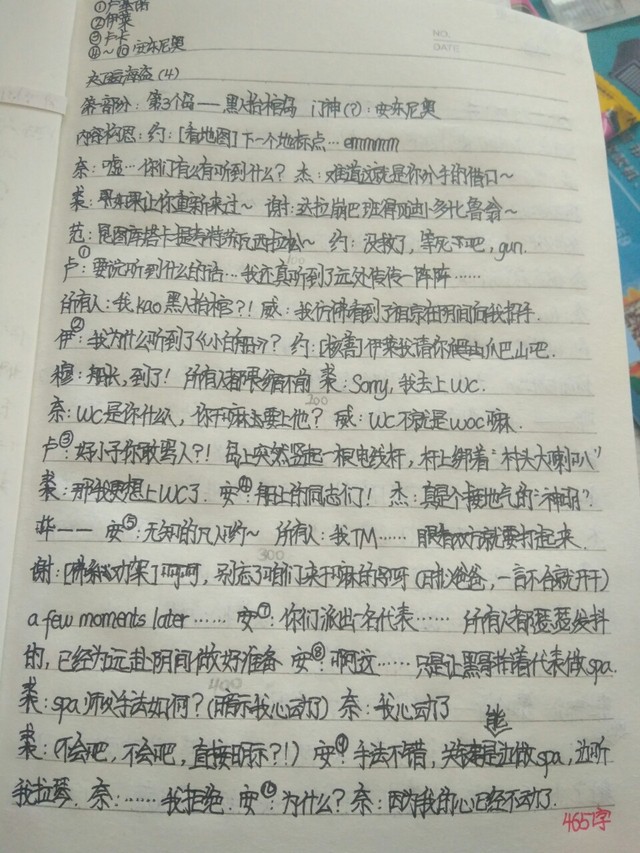 ①卢基诺
②伊莱
③卢卡
④～⑩安东尼奥
大画海盗(4)
第一部分：第3个岛——黑人抬棺岛 门神(?)：安东尼奥
内容构思：约：[看地图]下一个地标点…emmmm
奈：嘘…你们有么有听到什么? 杰：难道这就是你分手的借口～
裘：如果让你重新来过～ 谢：达拉崩巴班得贝迪卜多比鲁翁～
范：昆图库塔卡提考特苏瓦西拉松～ 约：没救了，等死吧，gun.
卢①：要说听到什么的话…我还真听到了远处传来一阵阵……
所有人：我kao黑人抬棺?! 威：我仿佛看到了祖宗在阴间向我招手.
伊②：我为什么听到了《小白船》? 约：[核善]伊莱我请你爬山爬巴山吧.
穆：船长,到了! 所有人都畏缩不前 裘：Sorry,我去上WC.
奈：WC是你什么人，你干嘛去要上他? 威：WC不就是woc嘛.
卢③：好小子你敢骂人?! 岛上突然竖起一根电线杆，杆上绑着“村头大喇叭”
裘：那我更想上WC了. 安④：船上的同志们! 杰：真是个接地气的“神明”.
哗—— 安⑤：无知的凡人哟～ 所有人：我TM…… 眼看双方就要打起来.
谢：[佛系劝架]呵呵，别忘了咱们来干嘛的哈呀(暴躁爸爸，一言不合就开干)
a few moments later…… 安⑦：你们派出一名代表…… 所有人都瑟瑟发抖
的，已经为远赴阴间做好准备 安⑧：啊这……只是让黑哥抬着代表做spa.
裘：spa师父手法如何?(暗示我心动了) 奈：我心动了
裘：(不会吧，不会吧，直接明示?!) 安⑨：手法不错，关键是能边做spa，边听
我拉琴. 奈：……我拒绝. 安⑩：为什么? 奈：因为我的心已经不动了.
465字